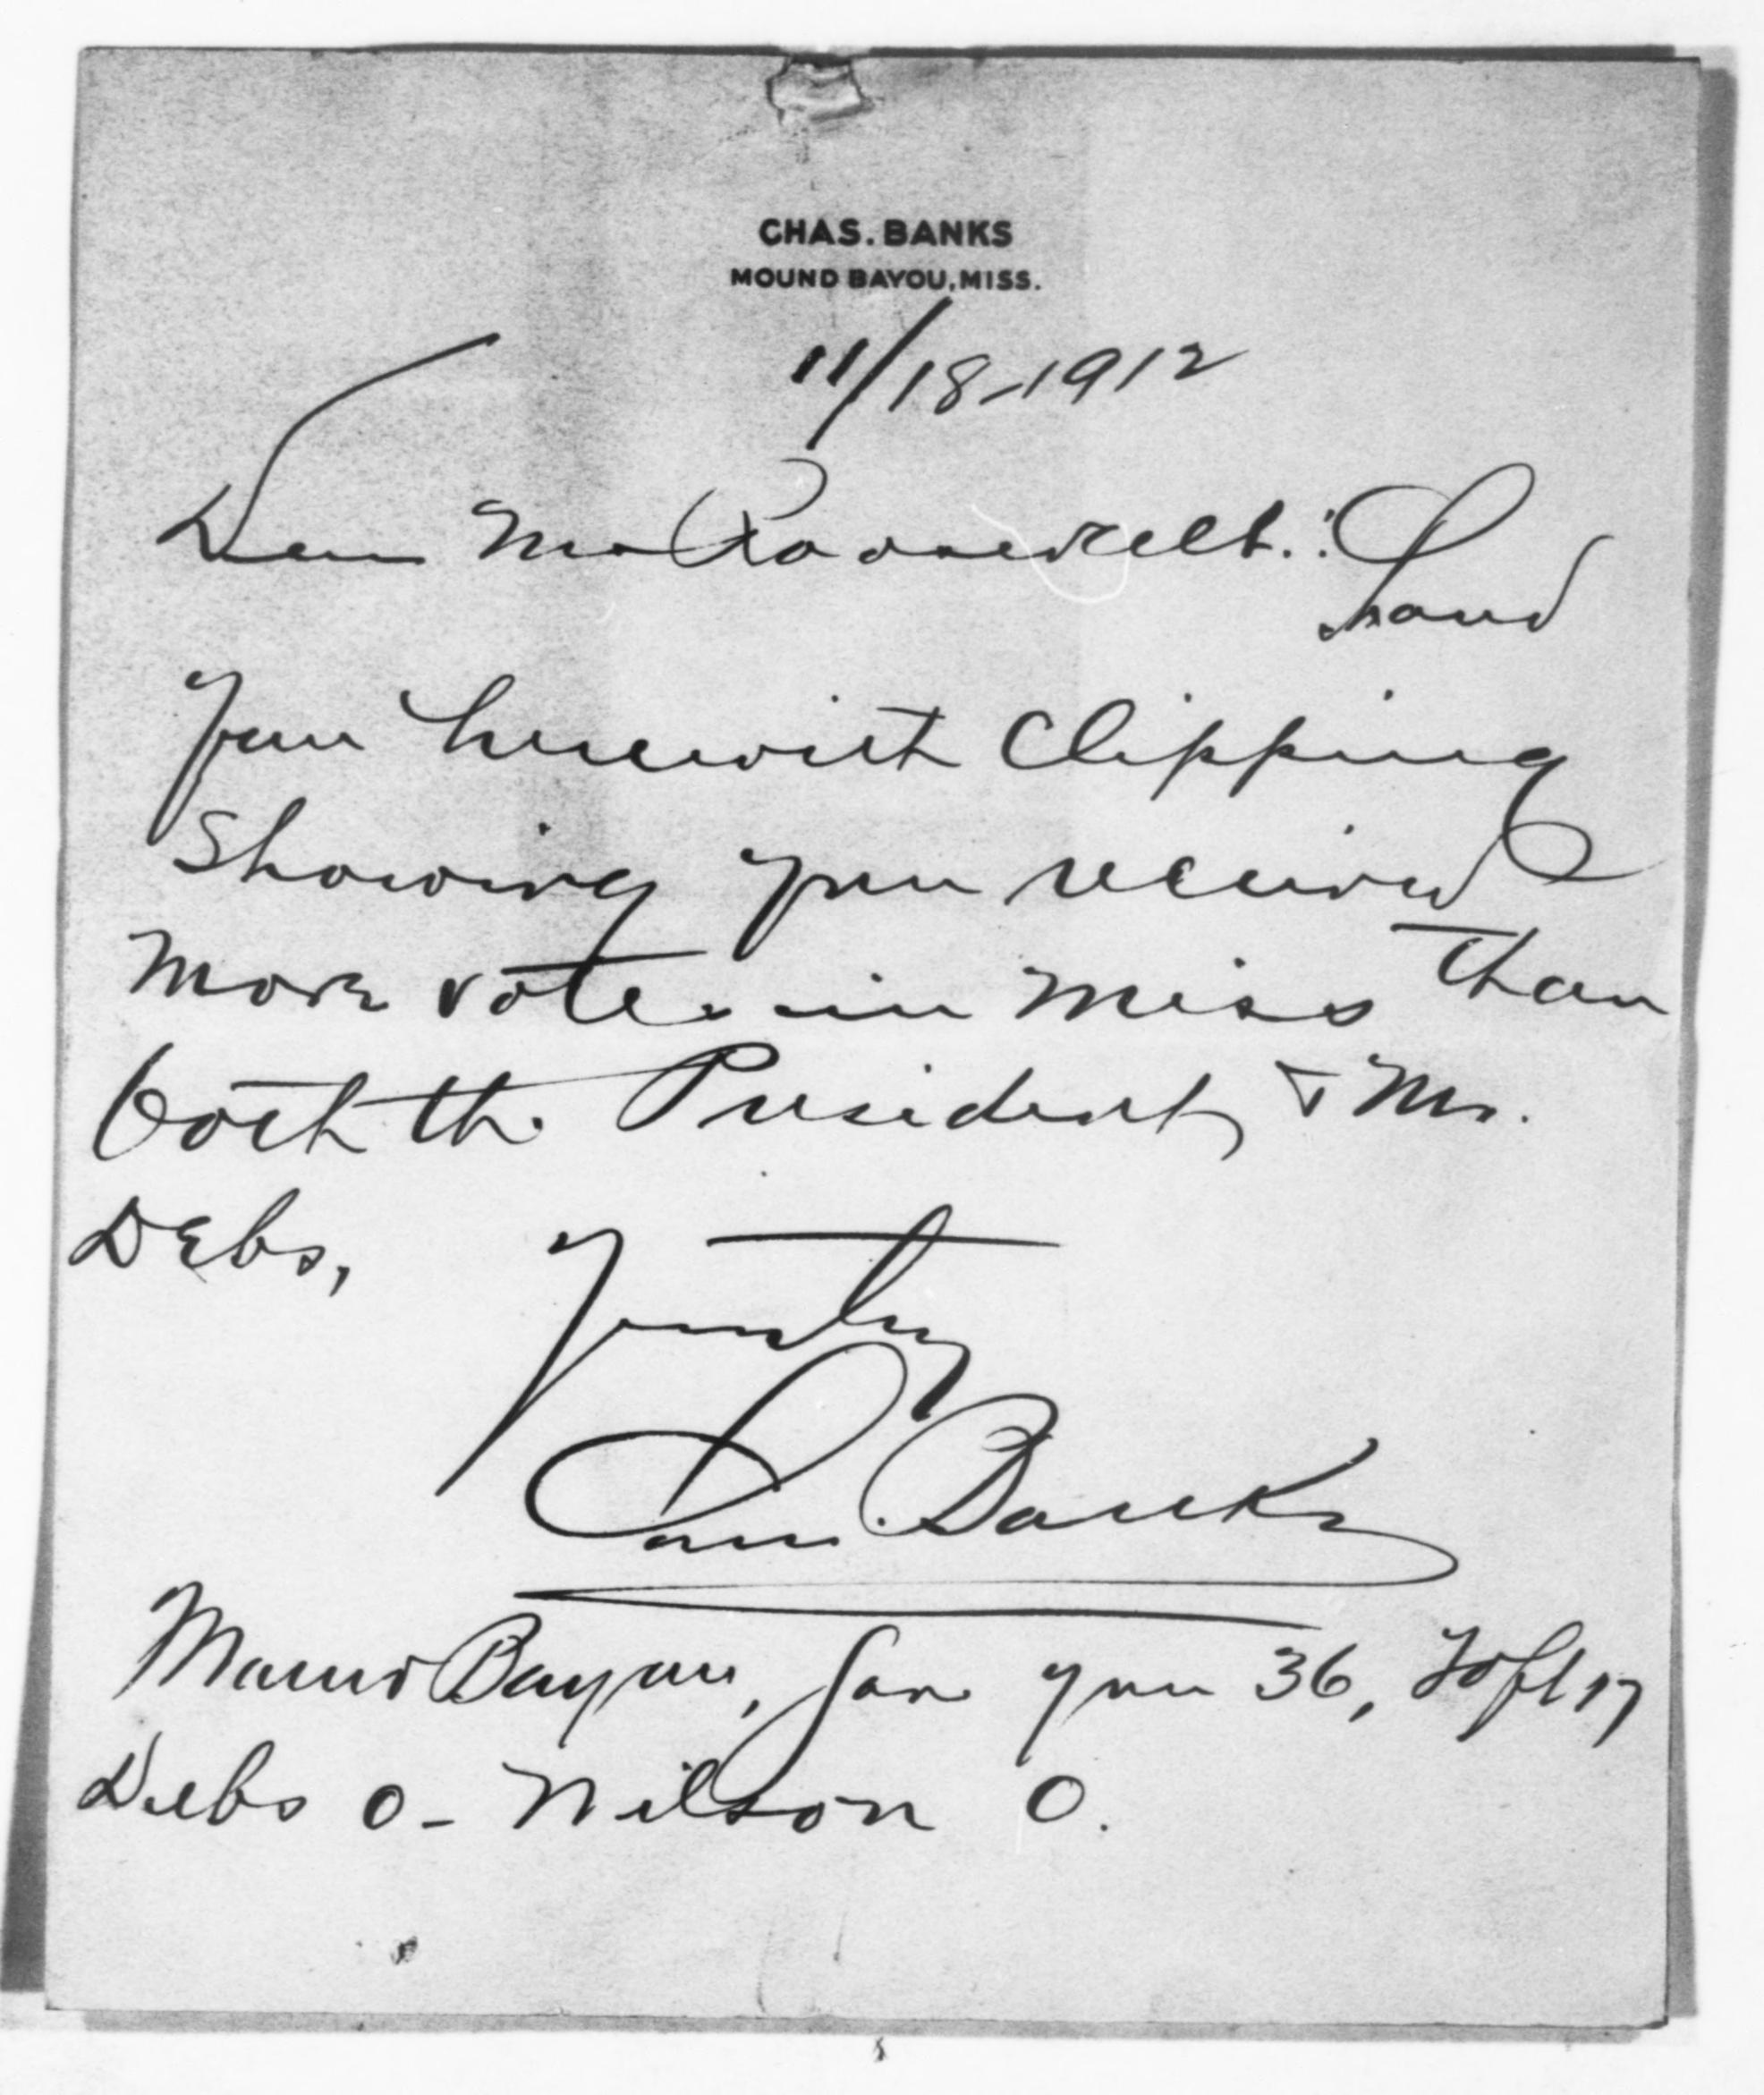 CHAS. BANKS
MOUND BAYOU, MISS.
11/18-1912
Dear Mr Roosevelt: I
hand
you herewith Clipping
Showing you received
more votes in Miss than
both the President, & Mr.
Debs,
Yours truly
Chas. Banks
Mound Bayou, gave you 36, Taft 17
Debs 0 - Wilson 0.